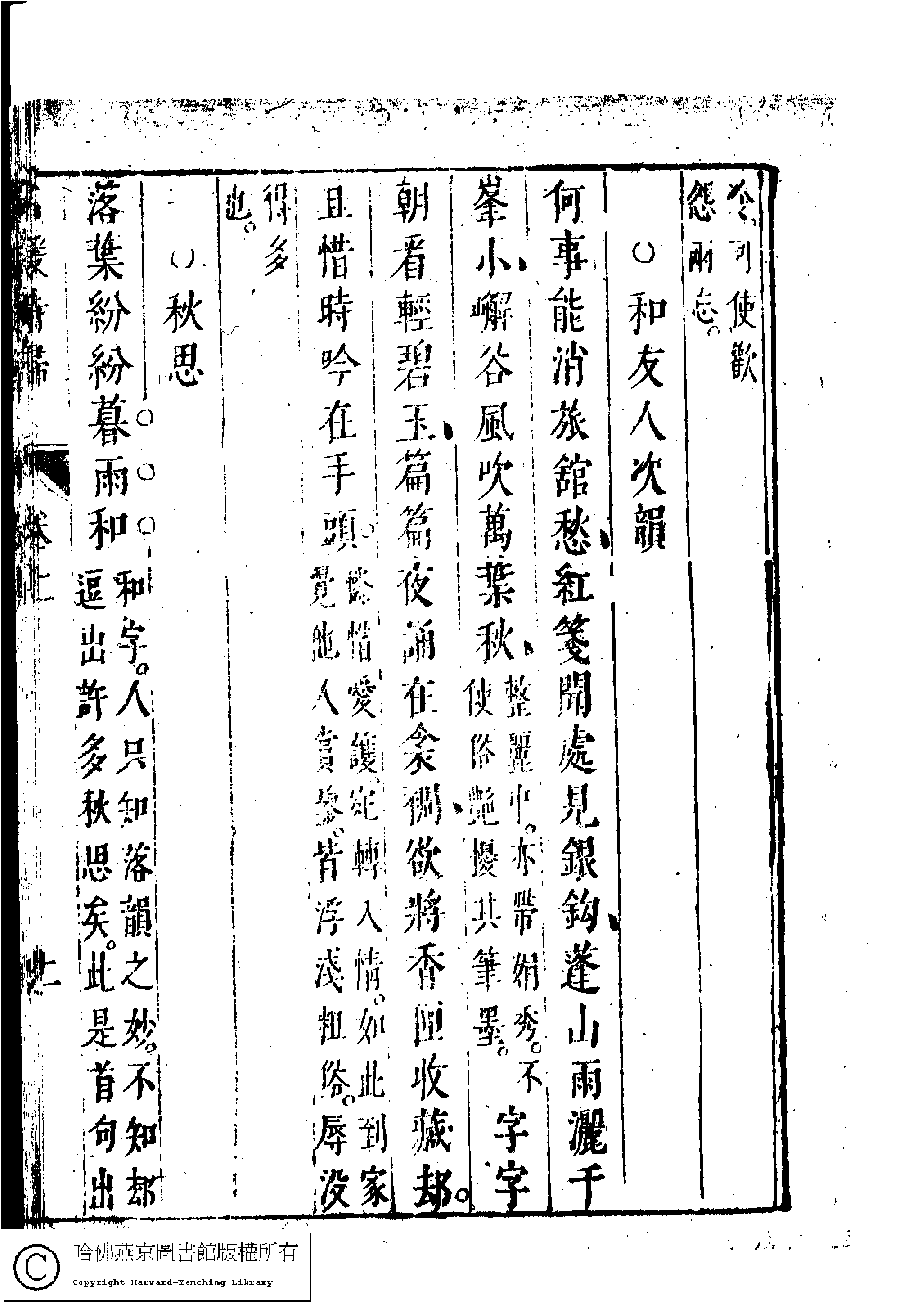 令可使歡
怨兩忘。
○和友人次韻
何事能消旅舘愁紅箋開處見銀鈎蓬山雨灑千
峯小嶰谷風吹萬葉秋
整麗中。亦帶娟秀。不
使俗艷擾其筆墨。
字字
朝看輕碧玉篇篇夜誦在衾裯欲將香匣收藏却。
且惜時吟在手頭。
憐惜愛護。定轉入情。如此到家
覺他人賞鑒。皆浮淺粗俗。辱沒
得多
也。
○秋思
落葉紛紛暮雨和
和字。人只知落韻之妙。不知却
逗出許多秋思矣。此是首句出
名媛詩歸
卷十
廿一
哈佛燕京圖書館版權所有
Copyright Harvard-Yenching Library